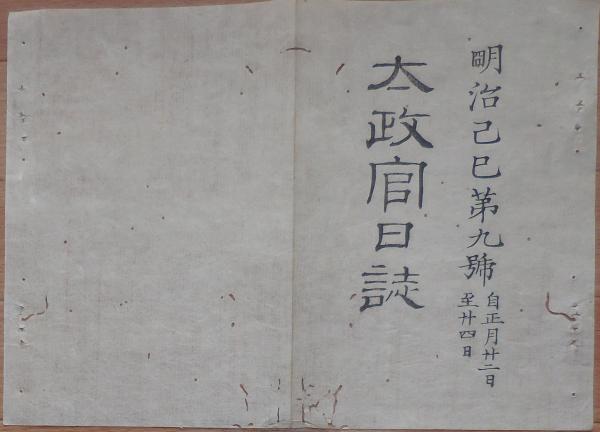 明治己巳第九號
自正月廿二日
至廿四日
太政官日誌